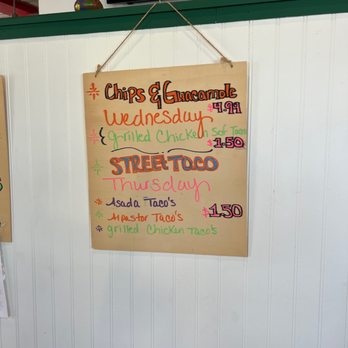 Chips & Guacamole
$4.99
Wednesday
grilled Chicken Sof Taco
$1.50
STREET TACO
Thursday
Asada Taco's
$1.50
Alpastor Taco's
grilled Chicken Taco's